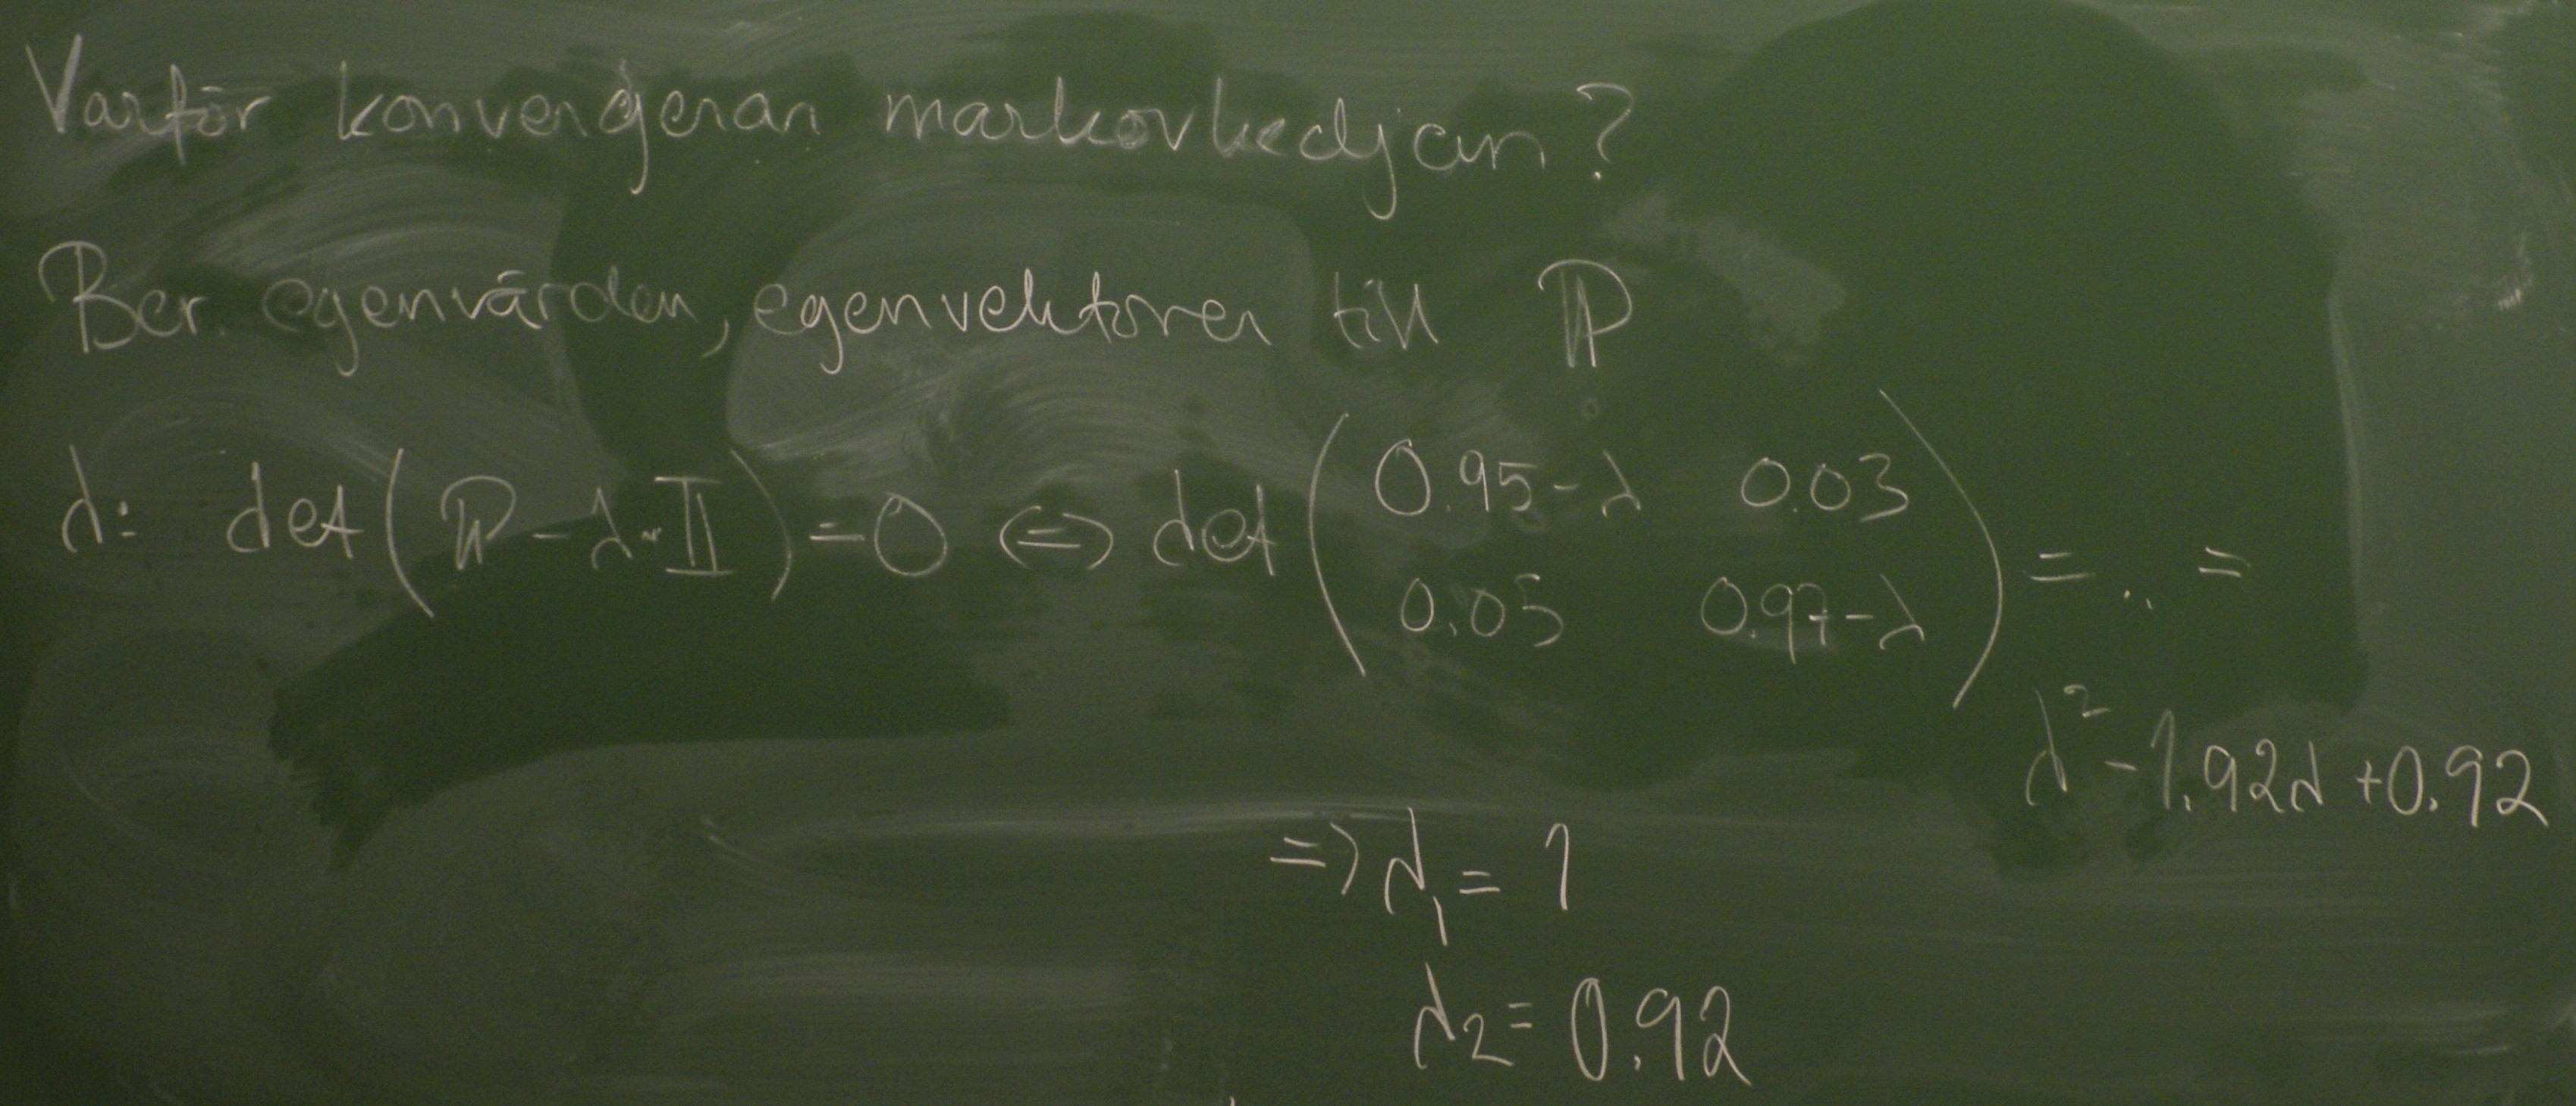 Varför konvergerar markovkedjan?
Ber. egenvärden, egenvektorer till ℙ
λ: det(ℙ - λ·𝕀) = 0 ⇔ det(0.95-λ 0.03
0.05 0.97-λ) = .. =
λ² - 1.92λ + 0.92
⇒ λ₁ = 1
λ₂ = 0.92